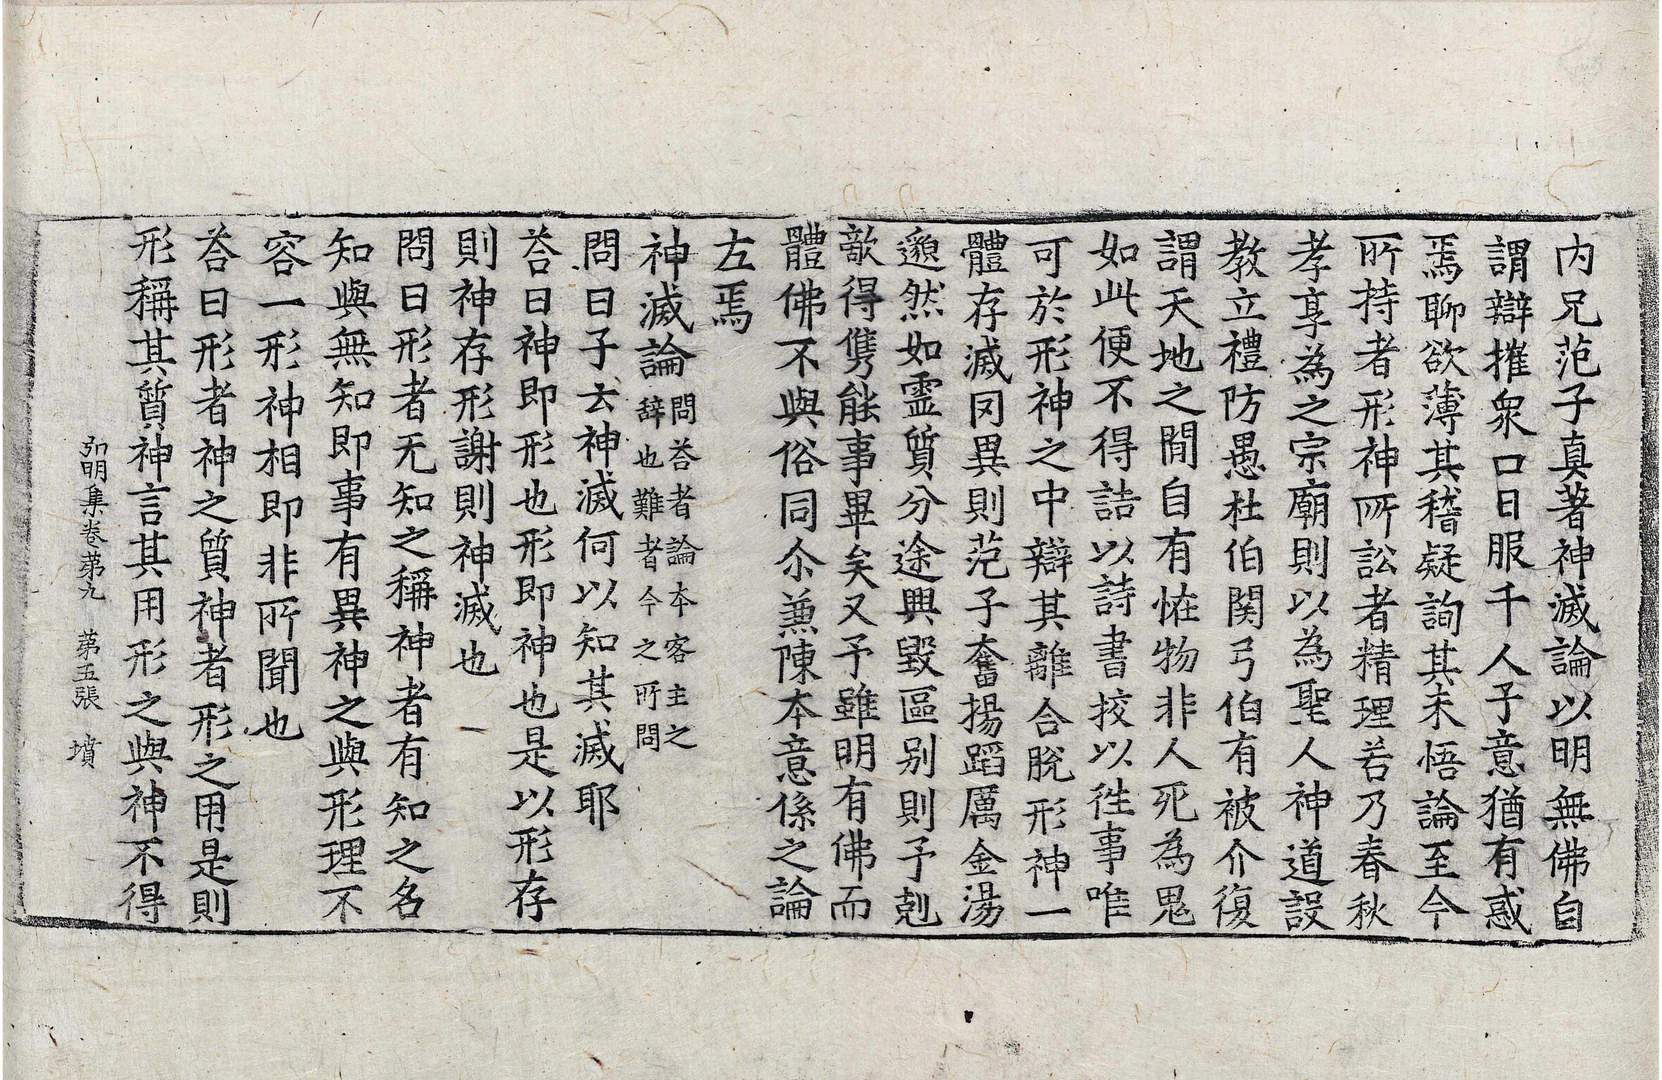 內兄范子真著神滅論以明無佛自
謂辯摧衆口日服千人子意猶有惑
焉聊欲薄其稽疑詢其未悟論至今
所持者形神所訟者精理若乃春秋
孝享為之宗廟則以為聖人神道設
教立禮防愚杜伯関弓伯有被介復
謂天地之間自有恠物非人死為鬼
如此便不得詰以詩書挍以徃事唯
可於形神之中辯其離合脫形神一
體存滅罔異則范子奮揚蹈厲金湯
邈然如靈質分途興毀區別則予剋
敵得雋能事畢矣又予雖明有佛而
體佛不與俗同尒兼陳本意係之論
左焉
神滅論問荅者論本客主之
辞也難者今之所問
問曰子云神滅何以知其滅耶
荅曰神即形也形即神也是以形存
則神存形謝則神滅也
問曰形者无知之稱神者有知之名
知與無知即事有異神之與形理不
容一形神相即非所聞也
荅曰形者神之質神者形之用是則
形稱其質神言其用形之與神不得
弘明集卷苐九 苐五張 墳